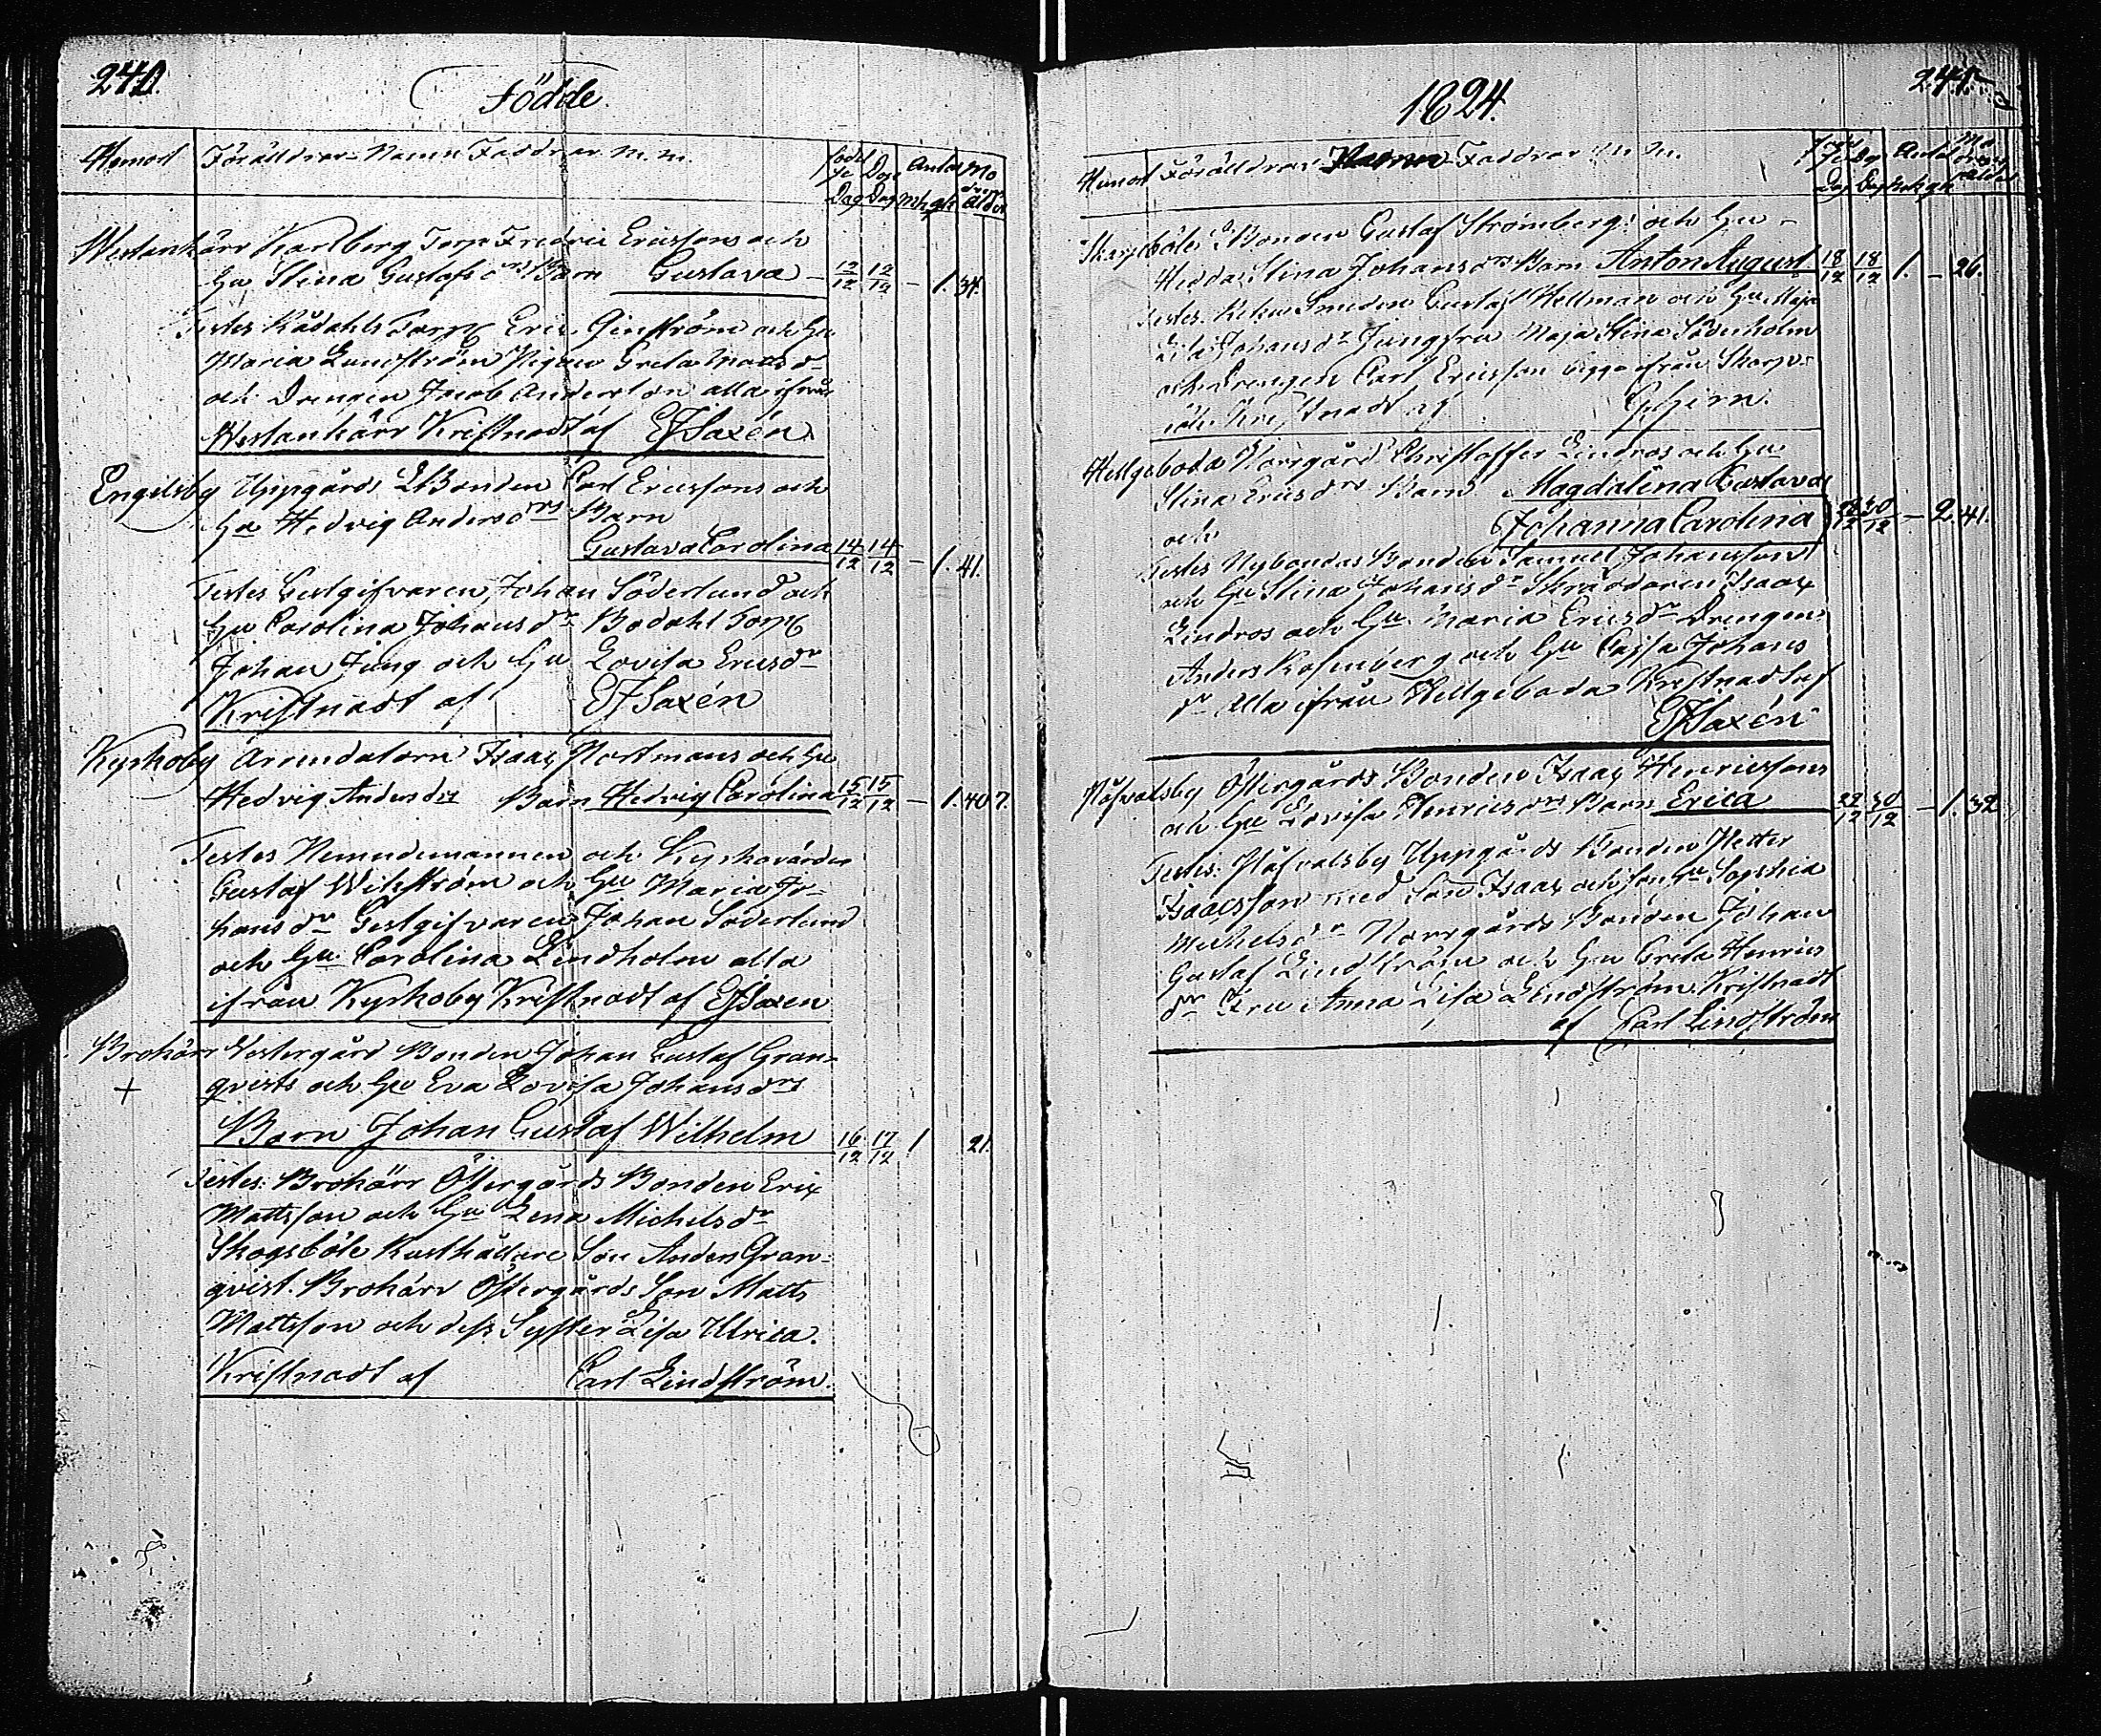 240.
Födde.
Hemort Föräldrar Namn Faddrar m. m.
född Dag Döpe Dag Antal Mk qk Moders Ålder
Westankärr Karlberg Torp Fredric Ericssons och
Hu Stina Gustafsdrs Barn Gustava 12/12 12/12 – 1. 34.
Testes Rådahls Torp Eric Ginström och Hu
Maria Lundström Pigan Greta Mattsdr
och Drengen Jacob Andersson alla ifrån
Westankärr Kristnadt af EJSaxén
Engelsby Uppgårds LBonden Carl Ericssons och
Hu Hedvig Andersdrs Barn
Gustava Carolina 14/12 14/12 – 1. 41.
Testes Gestgifvaren Johan Söderlund och
Hu Carolina Johansdr Bodahl Torp
Johan Jung och Hu Lovisa Ericsdr
Kristnadt af EJSaxén
Kyrkoby Arrendatorn Isaac Nortmans och Hu
Hedvig Andersdrs Barn Hedvig Carolina 15/12 15/12 – 1. 40 7.
Testes Nemndemannen och Kyrkovärden
Gustaf Wikström och Hu Maria Jo-
hansdr Gestgifvaren Johan Söderlund
och Hu Carolina Lindholm alla
ifrån Kyrkoby Kristnadt af EJSaxen
Brokärr Vestergård Bonden Johan Gustaf Gran-
qvists och Hu Eva Lovisa Johansdrs
+
Barn Johan Gustaf Wilhelm 16/12 17/12 1 21.
Testes: Brokärr Östergårds Bonden Eric
Mattsson och Hu Lena Michelsdr
Skogsböle Rusthållare Son Anders Gran-
qvist. Brokärr Östergårds Son Matts
Mattsson och dess Syster Lisa Ulrica.
Kristnadt af Carl Lindström.
1824.
241.
Hemort Föräldrar Namn Faddrar m. m.
Dag Dag Antal Mk qk Moders Ålder
Skarpböle LBonden Gustaf Strömberg och Hu
Hedda Stina Johansdrs Barn Anton August 18/12 18/12 1. – 26.
Testes. Smeden Gustaf Hellman och Hu Maja
Lisa Johansdr Jungfru Maja Stina Söderholm
och Drengen Carl Ericsson begge ifrån Skarp-
böle Kristnadt af GHirn.
Hellgeboda Norrgård Christoffer Lindros och Hu
Stina Ericsdrs Barn Magdalena Gustava
och Johanna Carolina 28/12 30/12 – 2. 41.
Testes Nybondas Bonden Samuel Johansson
och Hu Stina Johansdr Skräddaren Isaac
Lindros och Hu Maria Ericsdr Drengen
Anders Rosenberg och Hu Cajsa Johans
dr Alla ifrån Hellgeboda Kristnadt af
EJSaxén
Påfvalsby Östergårds Bonden Isaac Henricssons
och Hu Lovisa Henricsdrs Barn Erica 29/12 30/12 – 1. 32.
Testes: Påfvalsby Uppgårds Bonden Petter
Isaacsson med Son Isaac och son Hu Sophia
Michelsdr Norrgårds Bonden Johan
Gustaf Lindström och Hu Greta Henrics
dr Fru Anna Lisa Lindström Kristnadt
af Carl Lindström